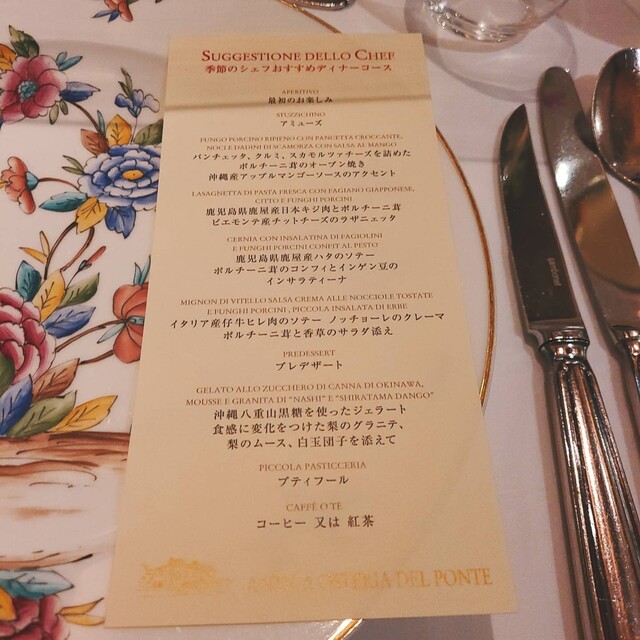 SUGGESTIONE DELLO CHEF
季節のシェフおすすめディナーコース
APERITIVO
最初のお楽しみ
STUZZICHINO
アミューズ
FUNGO PORCINO RIPIENO CON PANCETTA CROCCANTE,
NOCI E DADINI DI SCAMORZA CON SALSA AL MANGO
パンチェッタ、クルミ、スカモルツァチーズを詰めた
ポルチーニ茸のオーブン焼き
沖縄産アップルマンゴーソースのアクセント
LASAGNETTA DI PASTA FRESCA CON FAGIANO GIAPPONESE,
CITTO E FUNGHI PORCINI
鹿児島県鹿屋産日本キジ肉とポルチーニ茸
ピエモンテ産チットチーズのラザニェッタ
CERNIA CON INSALATINA DI FAGIOLINI
E FUNGHI PORCINI CONFIT AL PESTO
鹿児島県鹿屋産ハタのソテー
ポルチーニ茸のコンフィとインゲン豆の
インサラティーナ
MIGNON DI VITELLO SALSA CREMA ALLE NOCCIOLE TOSTATE
E FUNGHI PORCINI, PICCOLA INSALATA DI ERBE
イタリア産仔牛ヒレ肉のソテー ノッチョーレのクレーマ
ポルチーニ茸と香草のサラダ添え
PREDESSERT
プレデザート
GELATO ALLO ZUCCHERO DI CANNA DI OKINAWA,
MOUSSE E GRANITA DI "NASHI" E "SHIRATAMA DANGO"
沖縄八重山黒糖を使ったジェラート
食感に変化をつけた梨のグラニテ、
梨のムース、白玉団子を添えて
PICCOLA PASTICCERIA
プティフール
CAFFÈ O TÈ
コーヒー 又は 紅茶
OSTERIA DEL PONTE